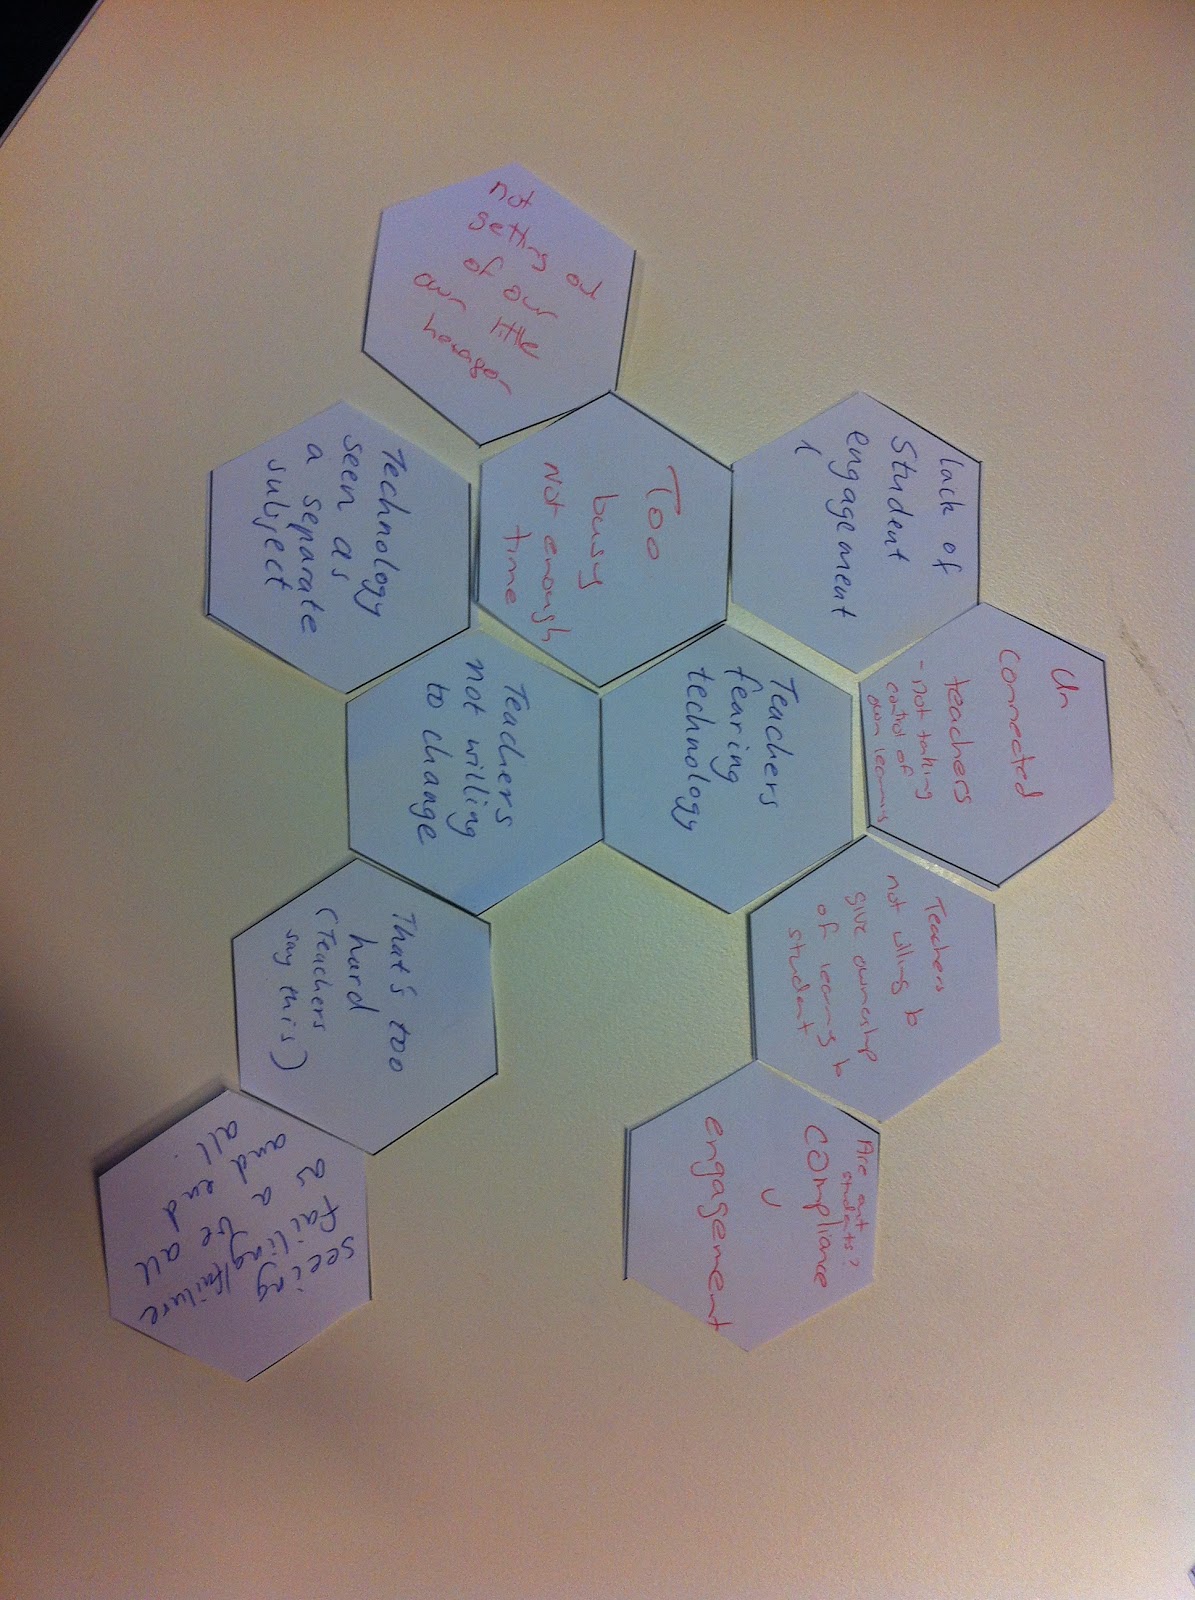 not
getting out
of our
our little
hexagon
lack of
Student
engagement
Too
busy
Not enough
time
Technology
seen as
a separate
subject
Un
connected
teachers
- not taking
control of
own learning
Teachers
fearing
technology
Teachers
not willing
to change
Teachers
not willing to
give ownership
of learning to
student
That's too
hard
(Teachers
say this)
Are out
students?
compliance
v
engagement
seeing
failing/failure
as a be all
and end
all.